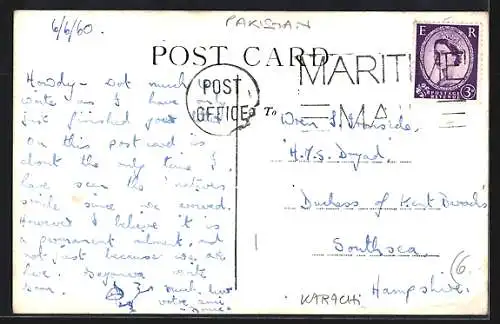 6/6/60.
PAKISTAN
POST CARD
POST
OFFICE
MARITI
MAI
E R
POSTAGE
3D
To
Howdy - not much to
write as I have only
just finished your
On this postcard is
about the only time I
have seen the natives
smile since we arrived.
However I believe it is
a permanent ailment, not
not just because we are
here. Sayonara write
soon.
Much luv
votre ami
Wren
H.M.S. Dryad,
Duchess of Kent Barracks
Southsea
Hampshire.
KARACHI
6